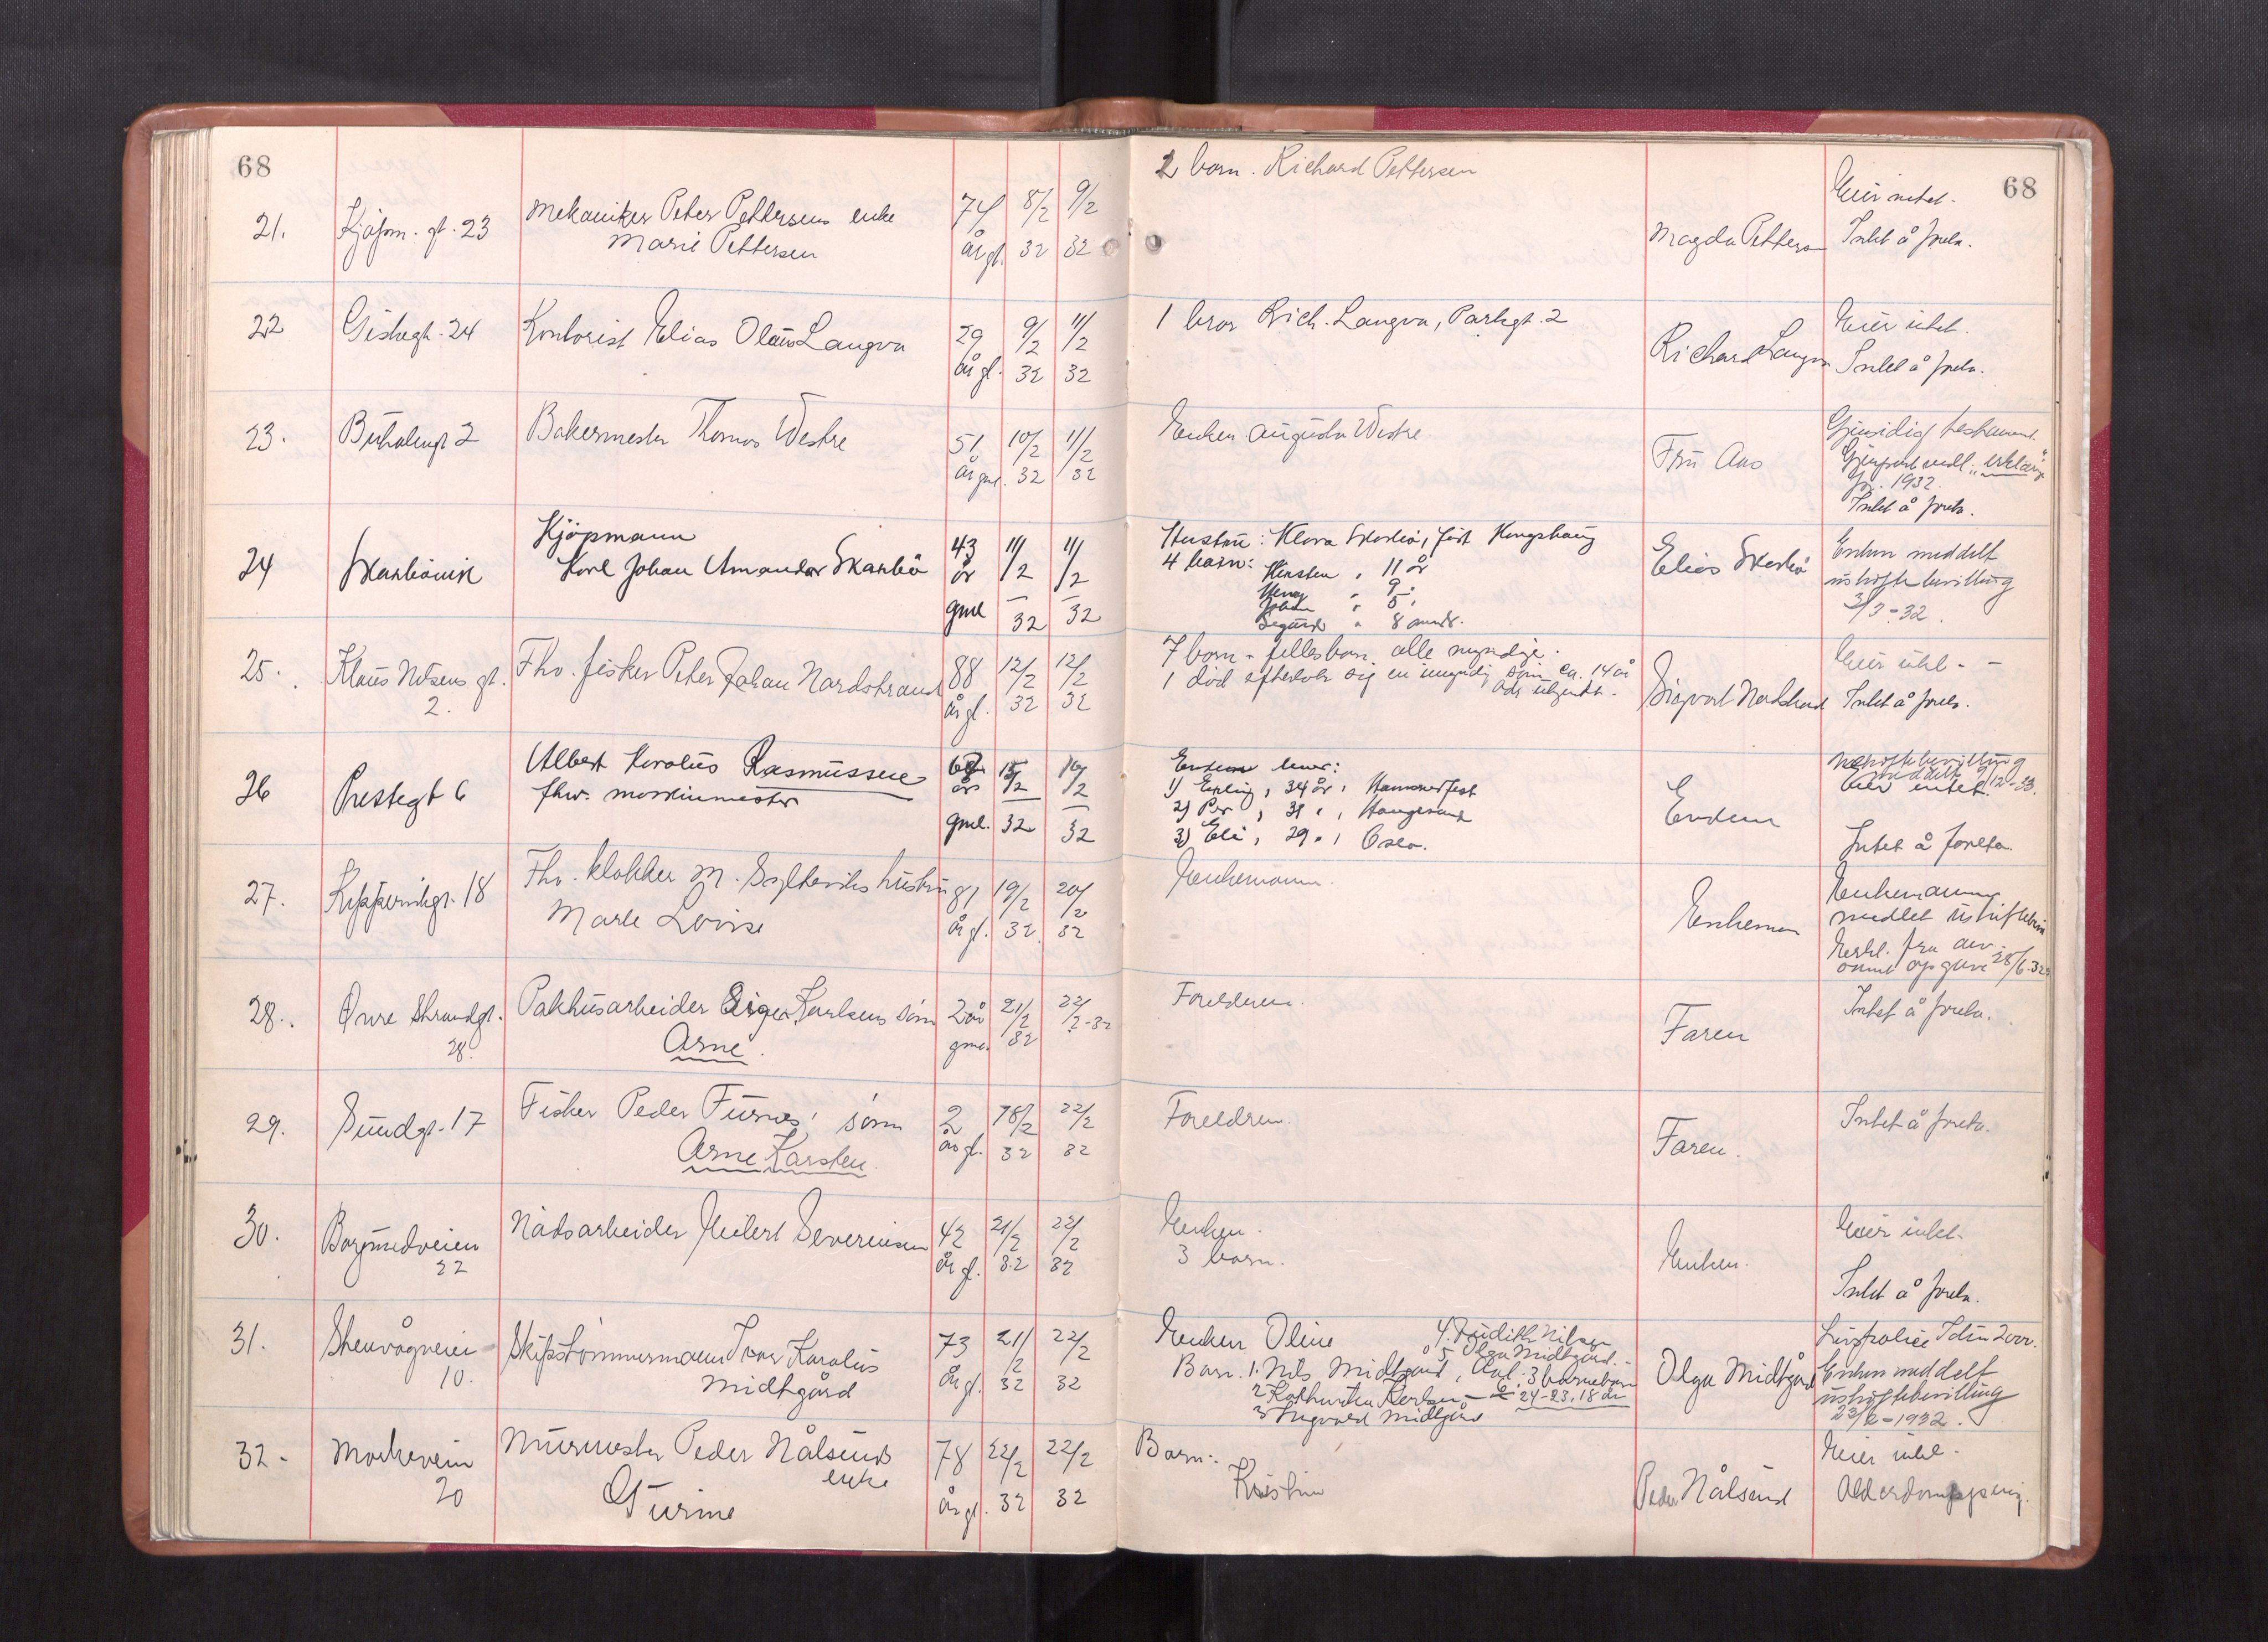 68
68
21. Kjøpm. gt. 23 Mekaniker Peter Pettersens enke 74 8/2 9/2 2 barn. Richard Pettersen Eier intet.
Marie Pettersen år gl. 32 32 Magda Pettersen Intet å foreta.
22 Giskegt. 24 Kontorist Elias Olaus Langva 29 9/2 11/2 1 bror Rich. Langva, Parkgt. 2 Eier intet.
år gl. 32 32 Richard Langva Intet å foreta.
23. 2 Bakermester Thomas Westre 51 10/2 11/2 Enken Augusta Westre Gjensidig testament.
år gml. 32 32 Fru Aas "erklæring"
1932.
Intet å foreta.
24 Skarbøvik Kjøpmann 43 11/2 11/2 Hustru: Klara Skarbø, født Kongshaug Elias Skarbø Enken meddelt
Karl Johan Amandar Skarbø år 4 barn: Karsten " 11 år uskiftebevilling
gml 32 32 " 9 " 3/3-32.
Johan " 5 "
Sigurd " 8 mndr.
25. Klaus Nilsens gt. Fhv. fisker Peter Johan Nordstrand 88 12/2 12/2 7 barn - fellesbarn, alle myndige. Eier intet -
2. år gl. 32 32 1 død efterlot sig en umyndig sønn ca. 14 år Sigvart Nordstrand Intet å foreta.
26 Prestegt 6 Albert Karolus Rasmussen 15/2 16/2 Enken Uskiftebevilling
fhv. maskinmester års 1) Erling, 34 år, Hammerfest meddelt 9/12-33.
gml. 32 32 2) Per, 31 ", Haugesund Enken Eier intet.
3) Eli, 29 ", Oslo. Intet å foreta.
27. Kipperviksgt. 18 Fhv. klokker M. Sylteviks hustru 81 19/2 20/2 Enkemann. Enkemann Enkemannen
Marte Lovise år gl. 32 32 meddelt uskiftebev.
fra
opgave 28/6-32
28. Øvre Strandgt. Pakhusarbeider Karlsens sønn 2 år 21/2 22/2-32 Foreldrene. Faren Intet å foreta.
28. Arne. gml. 32
29. Sundgt. 17 Fisker Peder Furnes' sønn 2 18/2 22/2 Foreldrene. Faren. Intet å foreta.
Arne Karsten. år gl. 32 32
30. Borgundveien Nådsarbeider Meilert Severinsen 42 21/2 22/2 Enken. Enken. Eier intet.
22 år gl. 32 32 3 barn. Intet å foreta.
31. Stenvågveien Skipstømmermann Ivar Karolus 73 21/2 22/2 Enken Oline 4. Judith Nilsen Olga Midtgård Livspolise 2000.
10. Midtgård år gl. 32 32 5 Olga Midtgård. Enken meddelt
Barn. 1. Nils Midtgård, 3 barnebarn uskiftebevilling
2 24-23, 18 år 23/2-1932.
3 Ingvard Midtgård
32. Morkaveien Murmester Peder Nålsunds 78 22/2 22/2 Barn: Eier intet.
20 enke år gl. 32 32 Kristine Peder Nålsund Alderdomspens.
Gurine